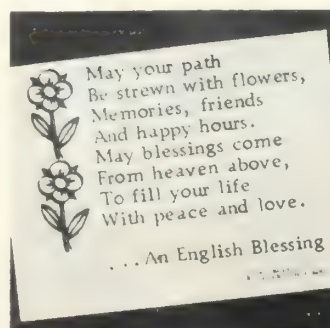 May your path
Be strewn with flowers,
Memories, friends
And happy hours.
May blessings come
From heaven above,
To fill your life
With peace and love.
... An English Blessing